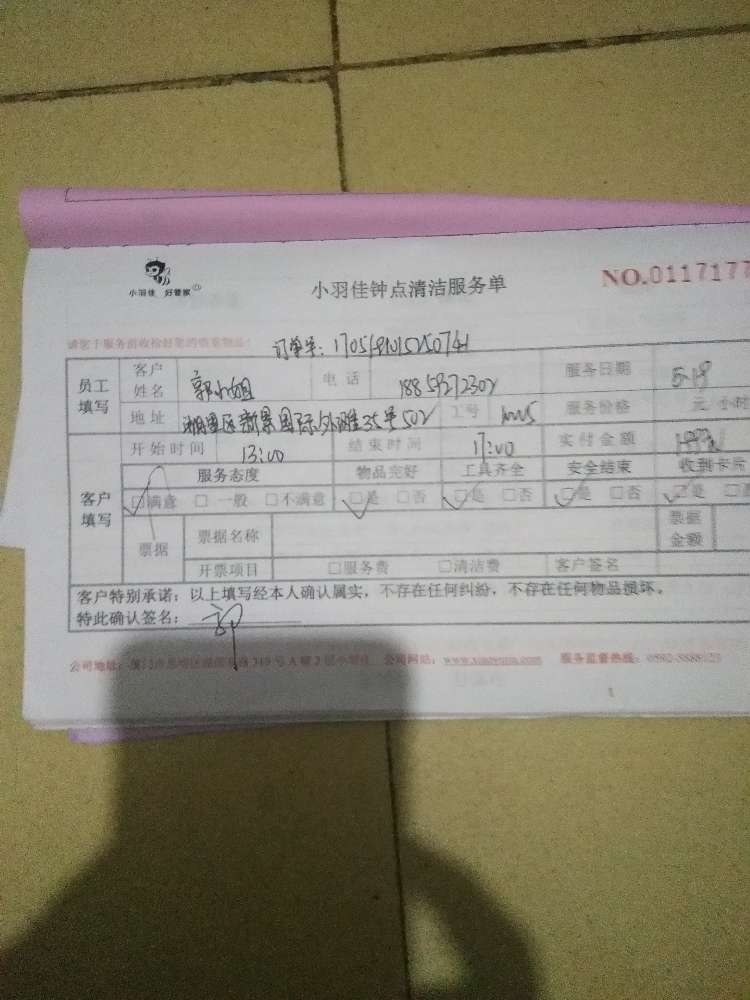 小羽佳 好管家
小羽佳钟点清洁服务单
NO.0117177
请您于服务前收检好您的贵重物品:
订单号:
员工填写
客户姓名 郭小姐 电话 18859272302 服务日期 5-18
地址 湖里区新景国际外滩35号502 工号 服务价格 元 小时
客户填写
开始时间 13:00 结束时间 17:00 实付金额
服务态度 物品完好 工具齐全 安全结束 收到卡片
□满意 □一般 □不满意 □是 □否 □是 □否 □是 □否 □是
票据 票据名称 票据金额
开票项目 □服务费 □清洁费 客户签名
客户特别承诺:以上填写经本人确认属实,不存在任何纠纷,不存在任何物品损坏。
特此确认签名: 郭
公司地址: 319号A幢2层小羽佳 公司网站: 服务监督热线:
1